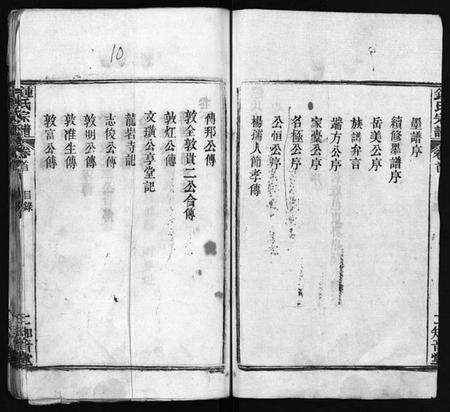 鍾氏宗譜
卷首
墨譜序
續修墨譜序
岳美公序
族譜弁言
瑞方公序
家臺公序
名極公序
公恒公序
楊孺人節孝傳
10
傳邦公傳
敦全敦貴二公合傳
敦灯公傳
文璜公享堂記
龍岩寺記
志俊公傳
敦明公傳
敦准生傳
敦富公傳
鍾氏宗譜
卷首
目錄